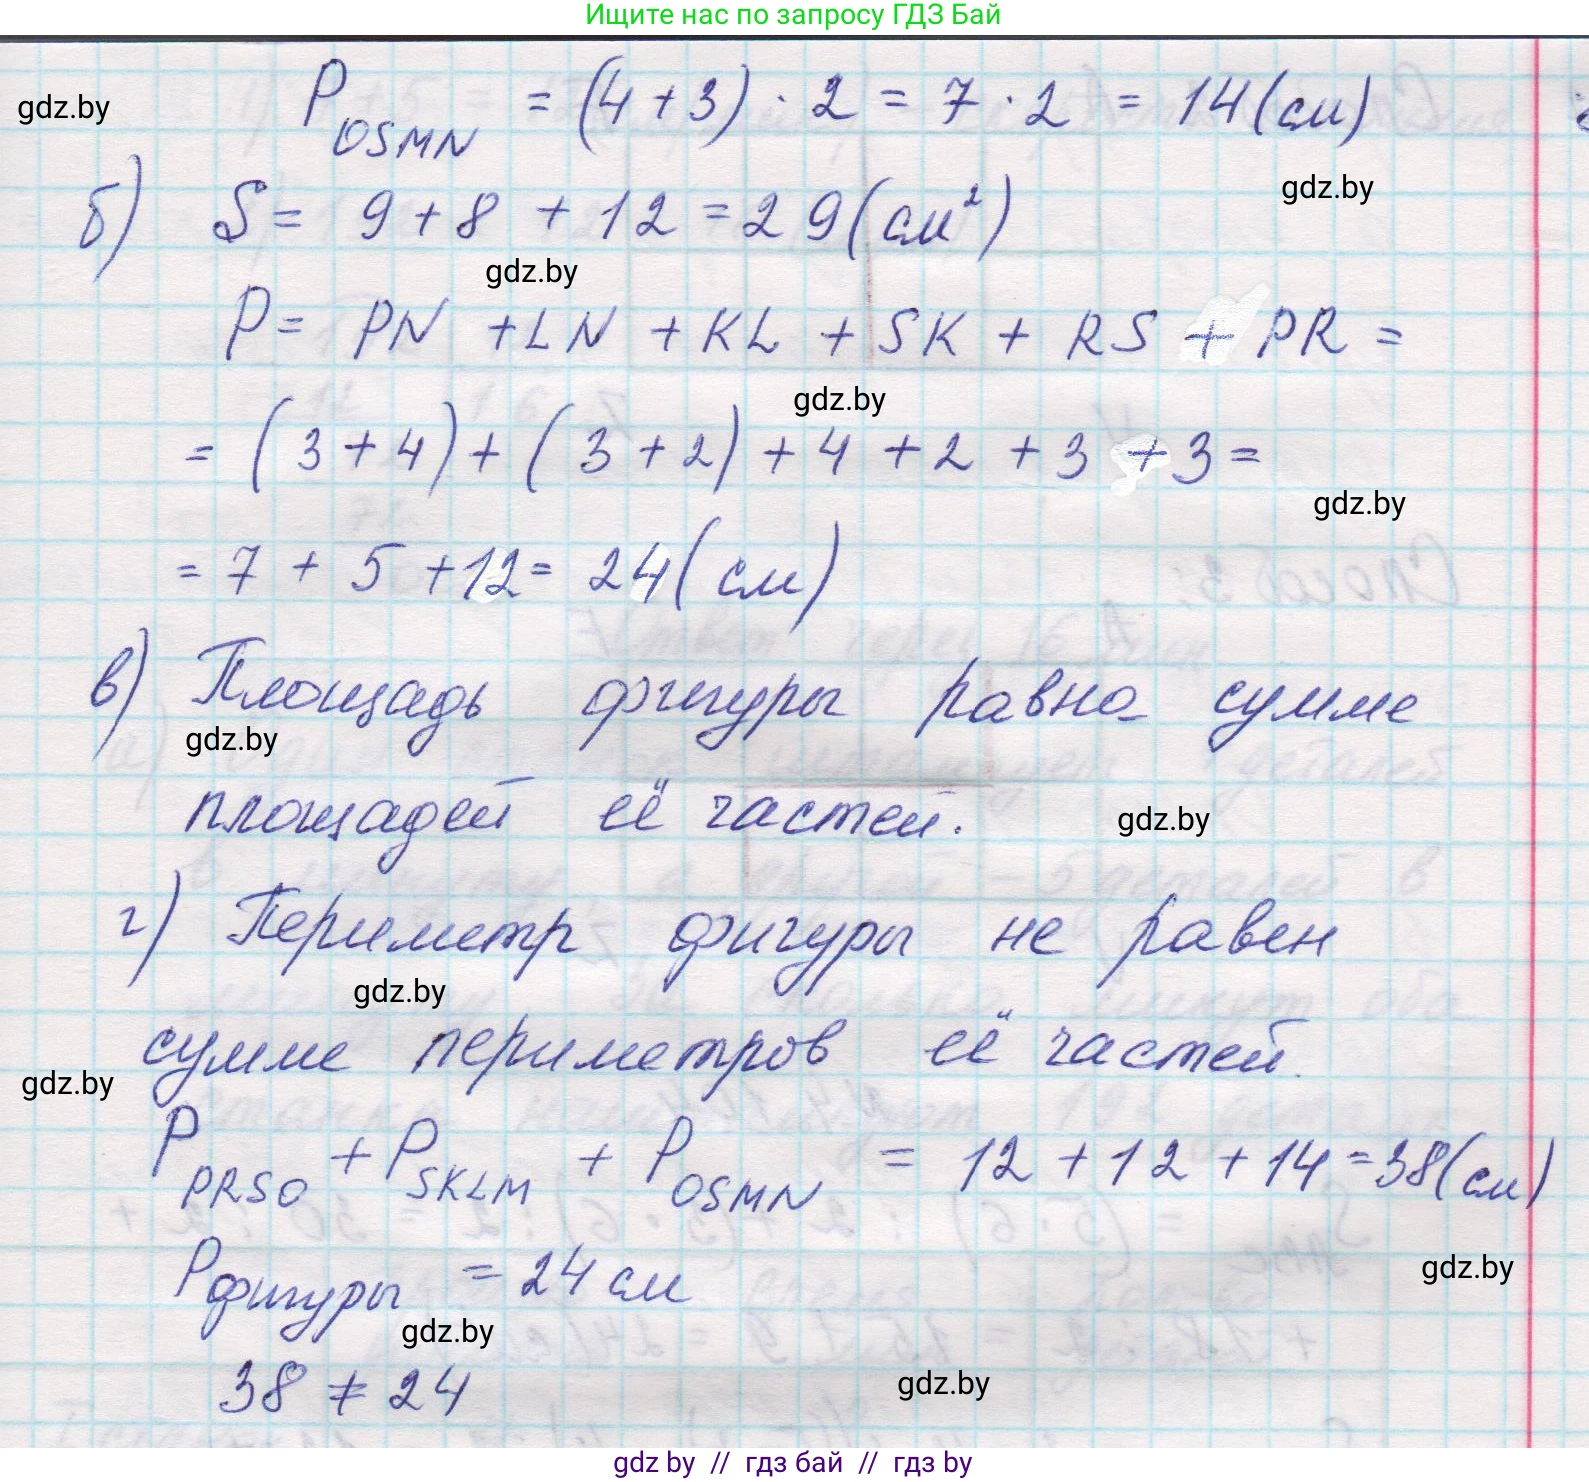 Ищите нас по запросу ГДЗ Бай
gdz.by
P OSMN = (4 + 3) · 2 = 7 · 2 = 14 (см)
gdz.by
б) S = 9 + 8 + 12 = 29 (см²)
gdz.by
P = PN + LN + KL + SK + RS + PR =
gdz.by
= (3 + 4) + (3 + 2) + 4 + 2 + 3 + 3 =
gdz.by
= 7 + 5 + 12 = 24 (см)
в) Площадь фигуры равна сумме
gdz.by
площадей её частей.
gdz.by
г) Периметр фигуры не равен
gdz.by
сумме периметров её частей.
gdz.by
P PRSO + P SKLM + P OSMN = 12 + 12 + 14 = 38 (см)
gdz.by
P фигуры = 24 см
gdz.by
38 ≠ 24
gdz.by
gdz by // гдз бай // гдз by